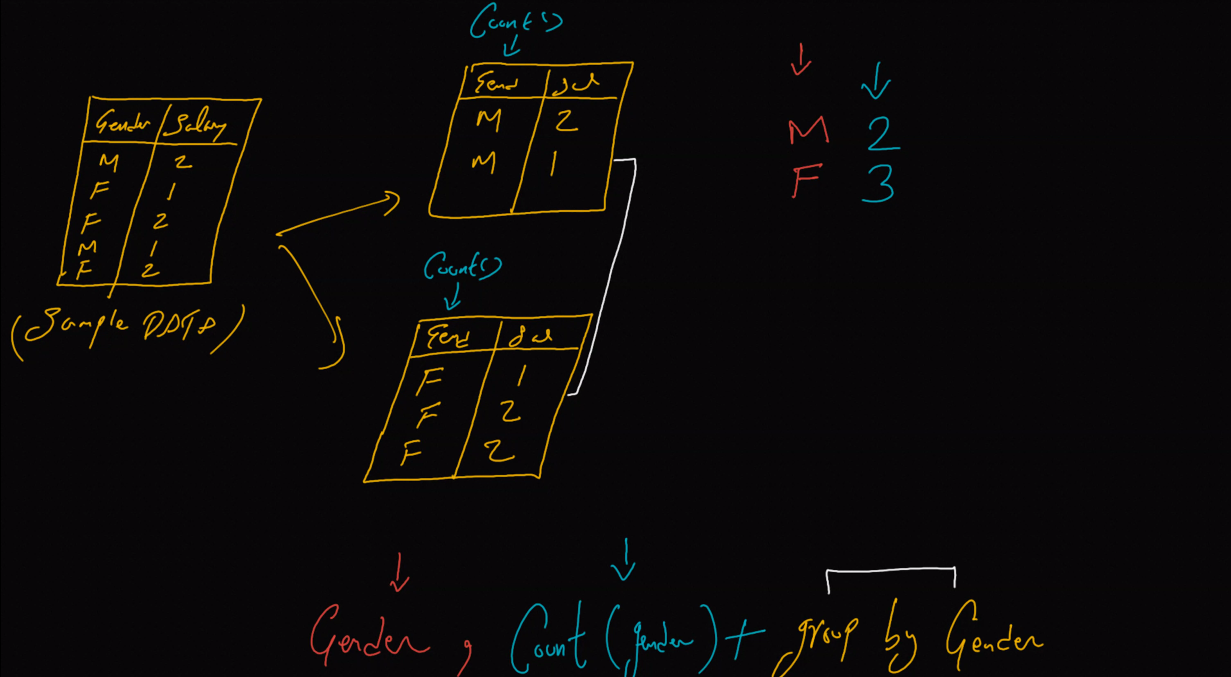 Gender Salary
M 2
F 1
F 2
M 1
F 2
(Sample DATA)
Count()
Gend Sal
M 2
M 1
Count()
Gend Sal
F 1
F 2
F 2
M 2
F 3
Gender, Count(gender) + group by Gender